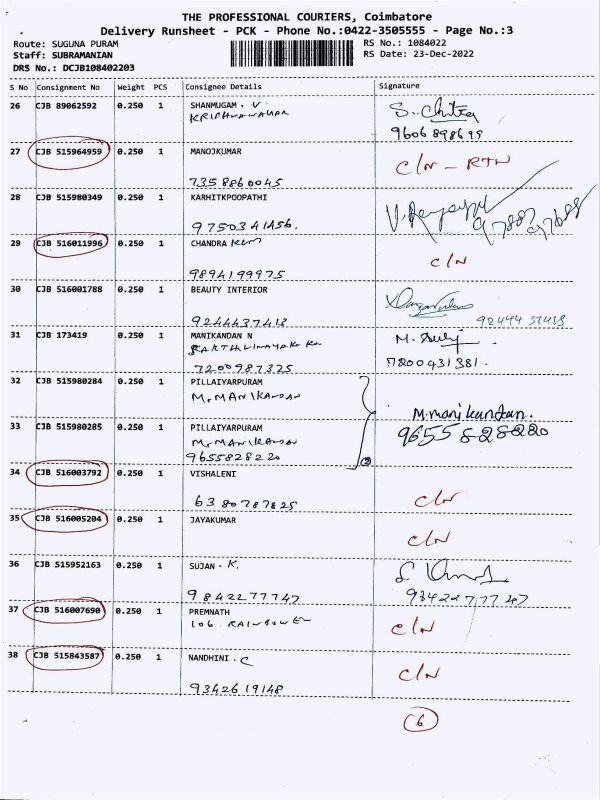 THE PROFESSIONAL COURIERS, Coimbatore
Delivery Runsheet - PCK - Phone No.:0422-3505555 - Page No.:3
Route: SUGUNA PURAM RS No.: 1084022
Staff: SUBRAMANIAN RS Date: 23-Dec-2022
DRS No.: DCJB108402203
S No Consignment No Weight PCS Consignee Details Signature
26 CJB 89062592 0.250 1 SHANMUGAM. V S. Chitra
KRISHNANAGAR
9606898695
27 CJB 515964959 0.250 1 MANOJKUMAR C/N - RTN
7358860045
28 CJB 515980349 0.250 1 KARHITKPOOPATHI
9750341456.
29 CJB 516011996 0.250 1 CHANDRA C/N
9894199975
30 CJB 516001788 0.250 1 BEAUTY INTERIOR
9244437413 92444 37413
31 CJB 173419 0.250 1 MANIKANDAN N
7200987325 7200431381.
32 CJB 515980284 0.250 1 PILLAIYARPURAM
M. MANIKANDAN M. manikandan.
33 CJB 515980285 0.250 1 PILLAIYARPURAM 9655828220
M. MANIKANDAN
9655828220 2
34 CJB 516003792 0.250 1 VISHALENI
6380787825 C/N
35 CJB 516005204 0.250 1 JAYAKUMAR
C/N
36 CJB 515952163 0.250 1 SUJAN. K.
9842277747 9842277747
37 CJB 516007690 0.250 1 PREMNATH
106. RAINBOWEN C/N
38 CJB 515843587 0.250 1 NANDHINI. C
C/N
9342619148
6